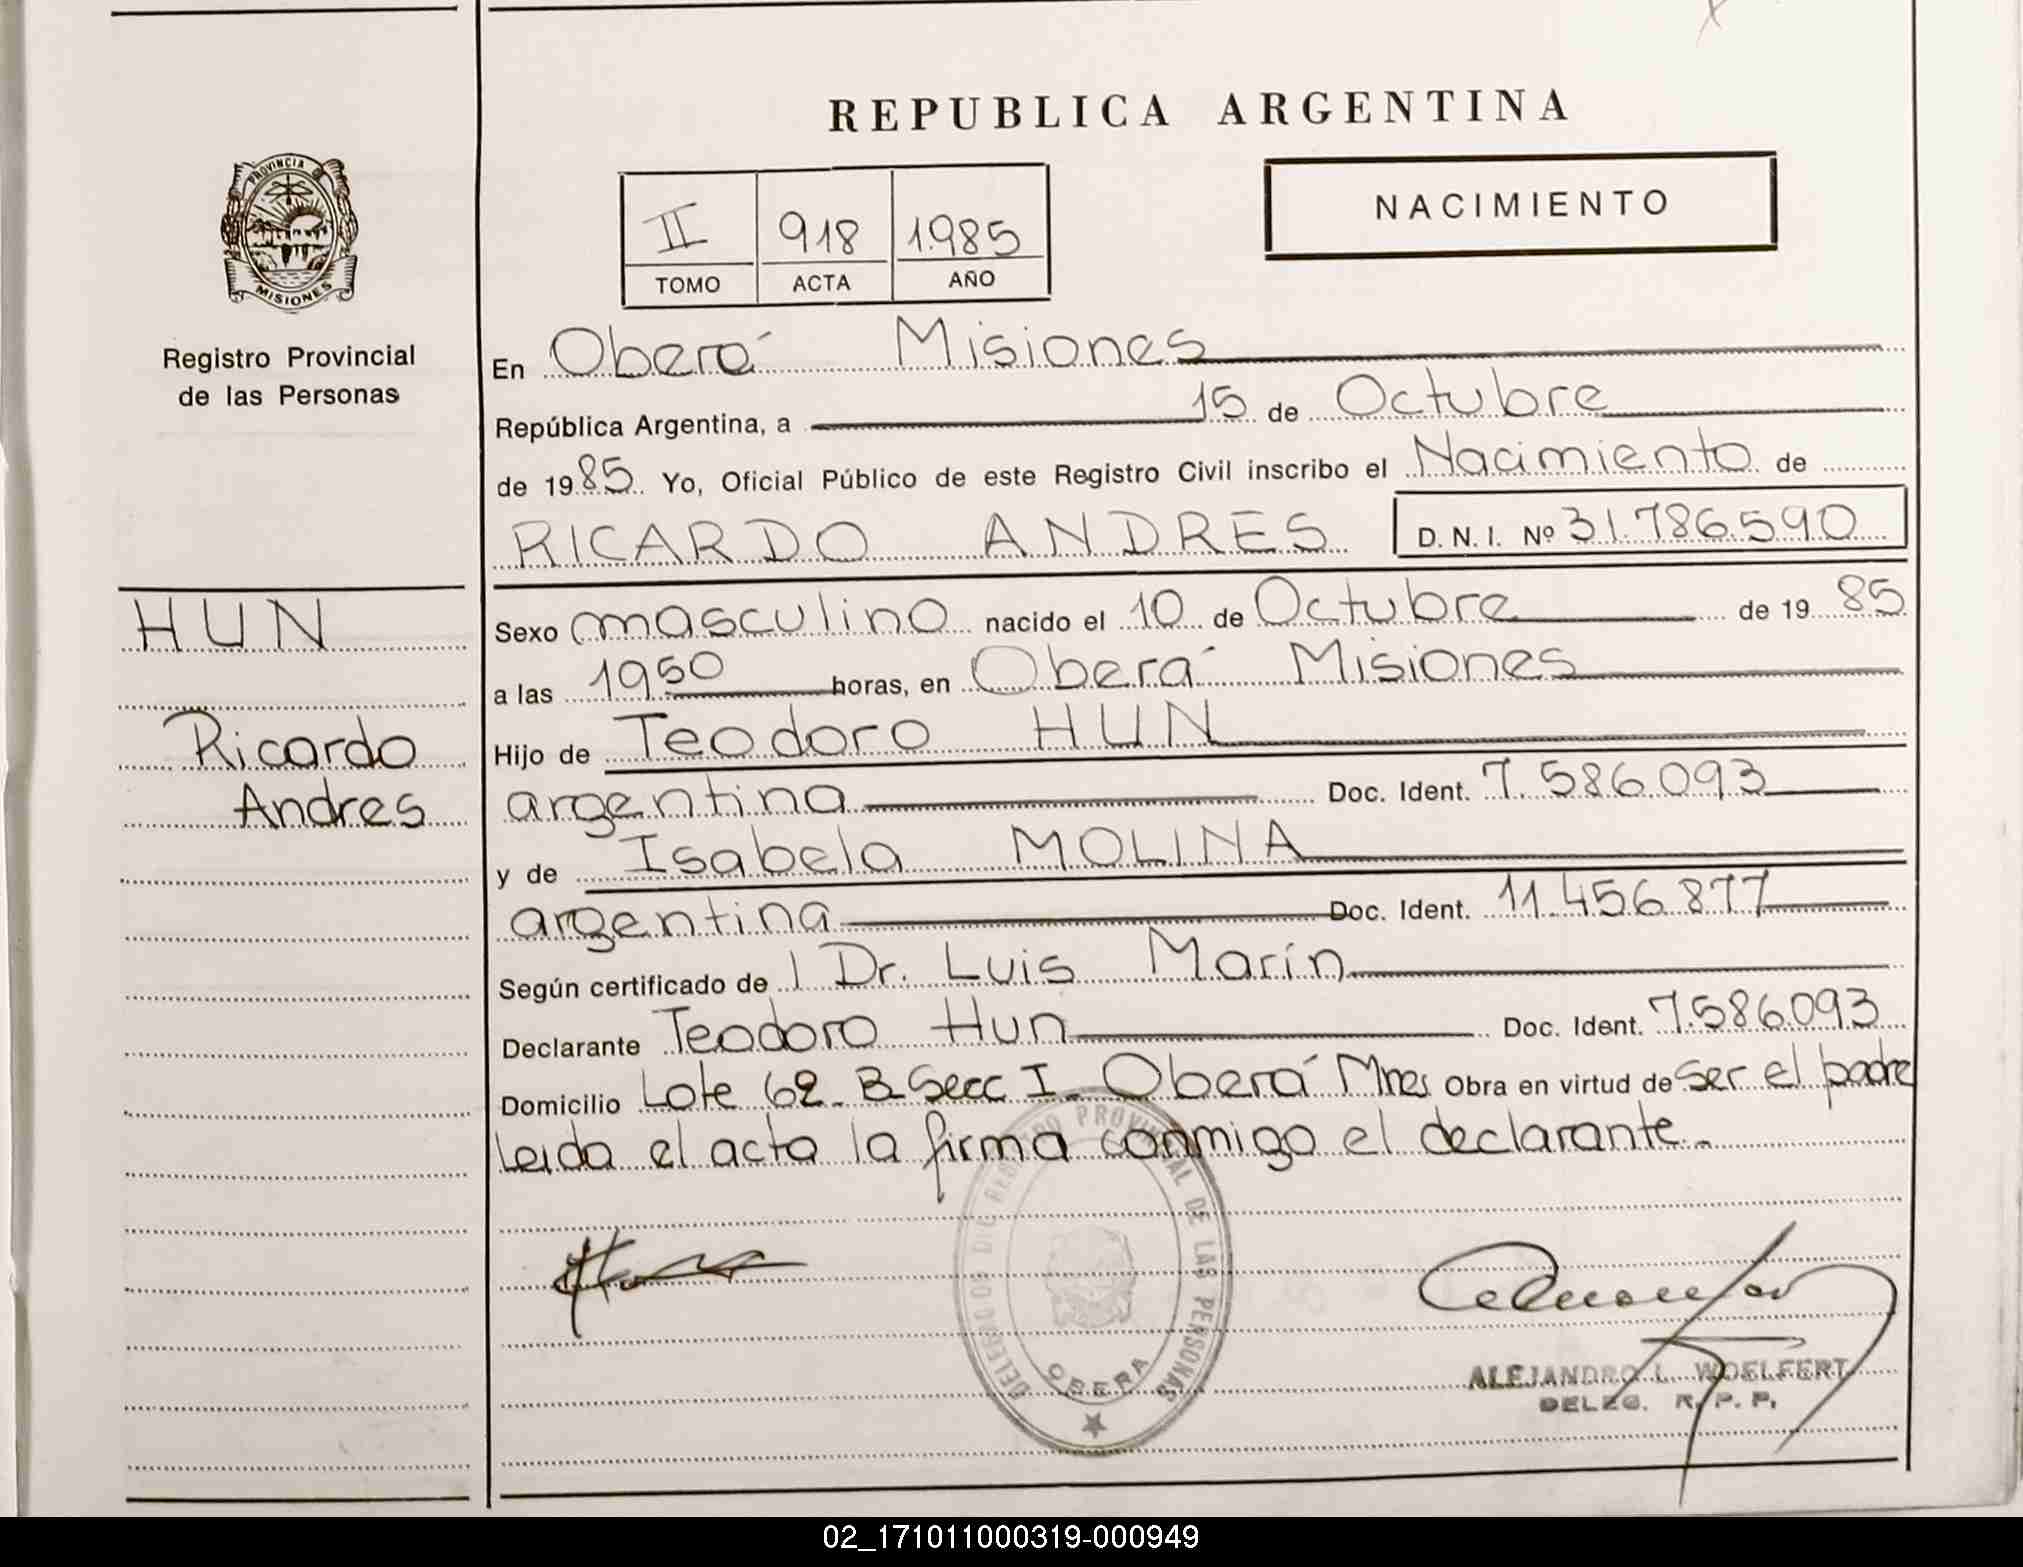 REPUBLICA ARGENTINA
PROVINCIA DE
MISIONES
Registro Provincial
de las Personas
II 918 1.985
TOMO ACTA AÑO
NACIMIENTO
En Oberá Misiones
República Argentina, a 15 de Octubre
de 1985. Yo, Oficial Público de este Registro Civil inscribo el Nacimiento de
RICARDO ANDRES D. N. I. Nº 31.786.590
HUN
Ricardo
Andres
Sexo masculino nacido el 10 de Octubre de 19 85
a las 1950 horas, en Oberá Misiones
Hijo de Teodoro HUN
argentina Doc. Ident. 7.586.093
y de Isabela MOLINA
argentina Doc. Ident. 11.456.877
Según certificado de Dr. Luis Marín
Declarante Teodoro Hun Doc. Ident. 7.586.093
Domicilio Lote 62. B Secc I. Oberá Mnes Obra en virtud de ser el padre
leida el acta la firma conmigo el declarante.
REGISTRO PROVINCIAL DE LAS PERSONAS
OBERA
ALEJANDRO L. WOELFERT
DELEG. R. P. P.
02_171011000319-000949